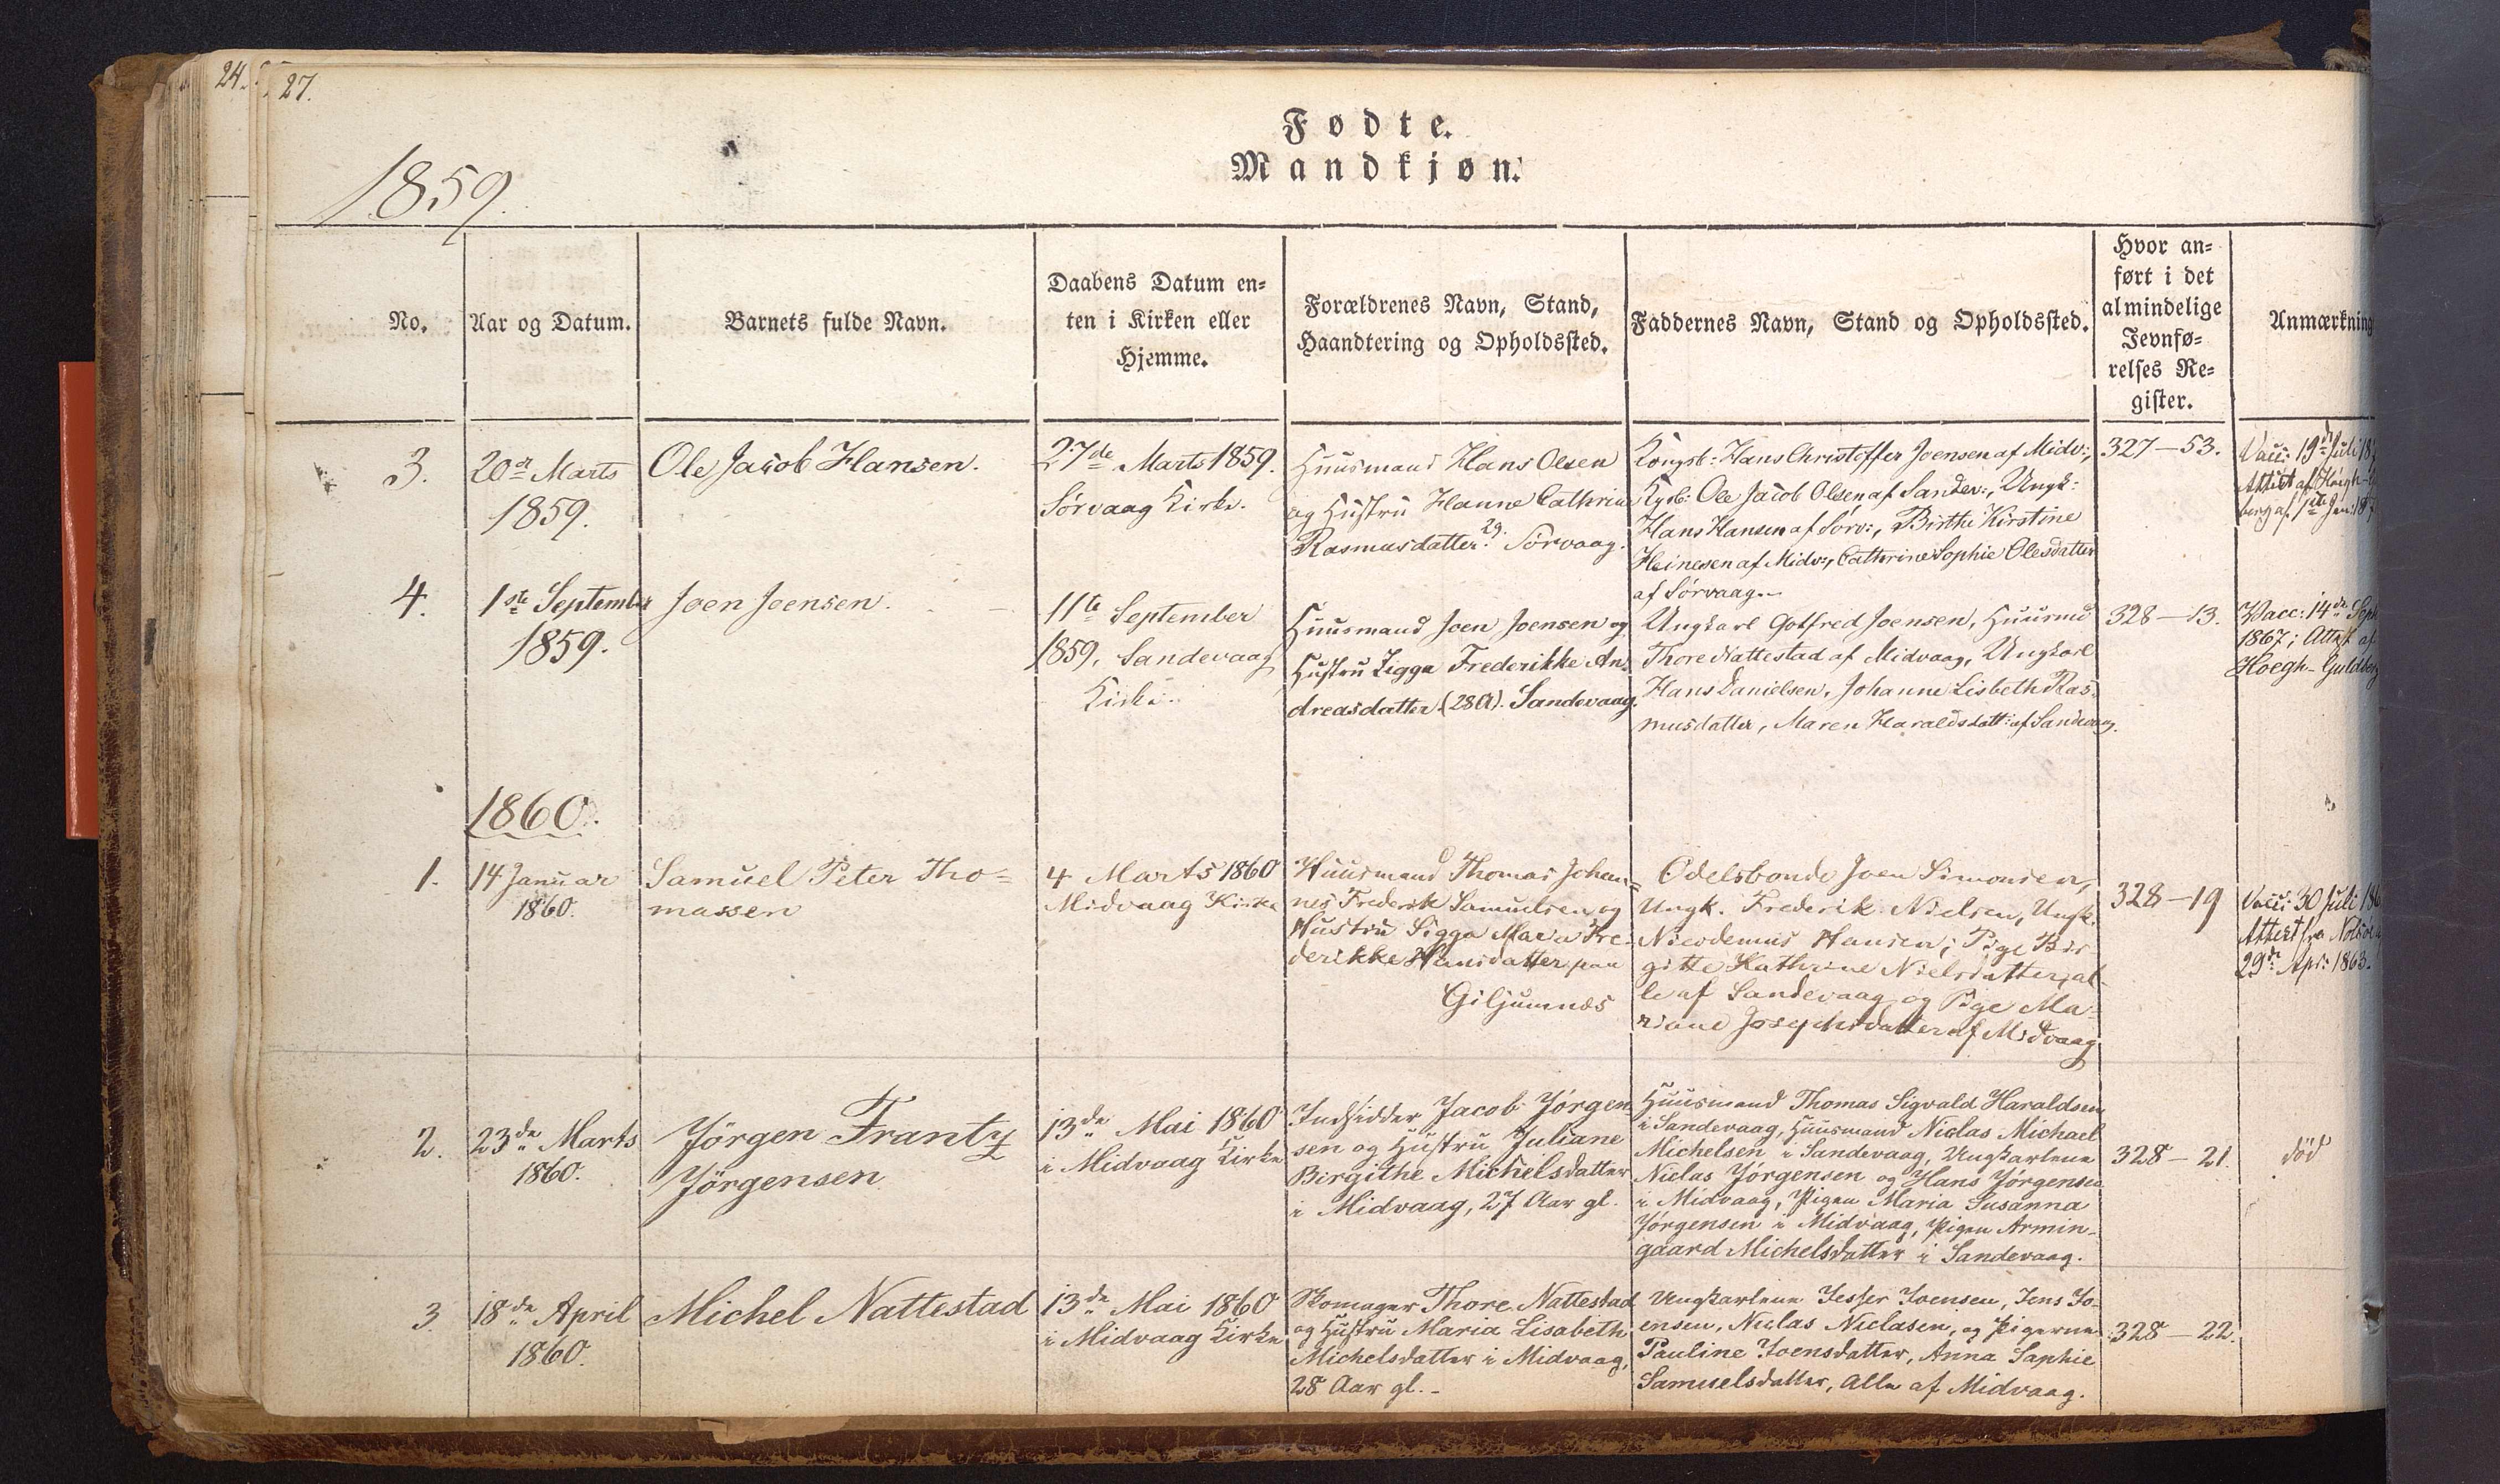 24.
27.
Fødte.
Mandkjøn.
1859.
No.
Aar og Datum.
Barnets fulde Navn.
Daabens Datum en=
ten i Kirken eller
Hjemme.
Forældrenes Navn, Stand,
Haandtering og Opholdssted.
Faddernes Navn, Stand og Opholdssted.
Hvor an=
ført i det
almindelige
Jevnfø=
relses Re=
gister.
Anmærkning
3.
20de Marts
1859.
Ole Jacob Hansen.
27de Marts 1859.
Sörvaag Kirke.
Huusmand Hans Olsen
og Hustru Hanne Cathrine
Rasmusdatter. 29. Sörvaag.
Kongsb: Hans Christoffer Joensen af Midv:,
Kgsb: Ole Jacob Olsen af Sandev:, Ungk:
Hans Hansen af Sörv:, Birthe Kirstine
Heinesen af Midv:, Cathrine Sophie Olesdatter
af Sörvaag.
327-53.
Vacc: 19de Juli 18
Attest af Höegh-
berg af 1ste Jan: 187
4.
1ste September
1859.
Joen Joensen.
11te September
1859, Sandevaag
Kirke.
Huusmand Joen Joensen og
Hustru Sigga Frederikke An-
dreasdatter. (28 A). Sandevaag.
Ungkarl Gotfred Joensen, Huusmd
Thore Nattestad af Midvaag, Ungkarl
Hans Danielsen, Johanne Lisbeth Ras-
musdatter, Maren Haraldsdatt: af Sandevaag.
328-13.
Vacc: 14de Sept
1867; Attest af
Hoegh-Guldberg
1860.
1.
14 Januar
1860.
Samuel Peter Tho=
massen
4 Marts 1860
Midvaag Kirke
Huusmand Thomas Johan=
nes Frederik Samuelsen og
Hustru Sigga Maria Fre-
derikke Hansdatter paa
Giljumnæs
Odelsbonde Joen Simonsen,
Ungk. Frederik Nielsen, Ungk.
Nicodemus Hansen; Pige Bir
gitte Kathrine Nielsdatter, al-
le af Sandevaag og Pige Ma-
riane Josephsdatter af Midvaag
328-19
Vacc: 30 Juli 186
Attest fra Nolsöe
29de Apr: 1863.
2.
23de Marts
1860.
Jörgen Frantz
Jörgensen
13de Mai 1860
i Midvaag Kirke
Indsidder Jacob Jörgen-
sen og Hustru Juliane
Birgithe Michelsdatter
i Midvaag, 27 Aar gl.
Huusmand Thomas Sigvald Haraldsen
i Sandevaag, Huusmand Niclas Michael
Michelsen i Sandevaag, Ungkarlene
Niclas Jörgensen og Hans Jörgensen
i Midvaag, Pigen Maria Susanna
Jörgensen i Midvaag, Pigen Armin-
gaard Michelsdatter i Sandevaag.
328-21.
död
3.
18de April
1860.
Michel Nattestad
13de Mai 1860
i Midvaag Kirke
Skomager Thore Nattestad
og Hustru Maria Lisabeth
Michelsdatter i Midvaag,
28 Aar gl.-
Ungkarlene Jesper Joensen, Jens Jo-
ensen, Niclas Niclasen, og Pigerne
Pauline Joensdatter, Anna Sophie
Samuelsdatter, Alle af Midvaag.
328-22.